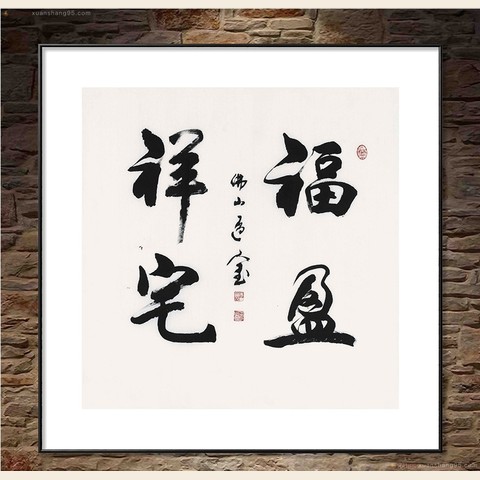 xuanshang95.com
福盈
祥宅
佛山
xuanshang95.com